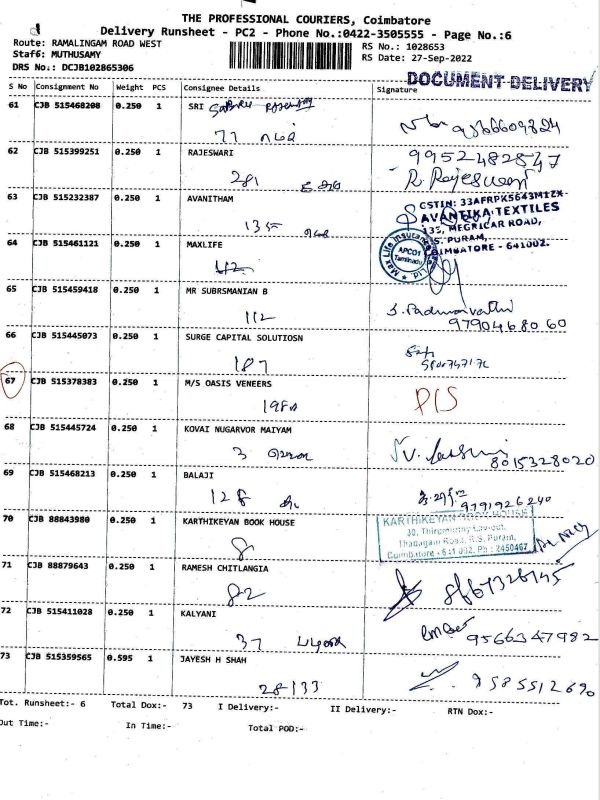 THE PROFESSIONAL COURIERS, Coimbatore
Delivery Runsheet - PC2 - Phone No.:0422-3505555 - Page No.:6
Route: RAMALINGAM ROAD WEST
RS No.: 1028653
Staff: MUTHUSAMY
RS Date: 27-Sep-2022
DRS No.: DCJB102865306
DOCUMENT DELIVERY
S No Consignment No Weight PCS Consignee Details Signature
61 CJB 515468208 0.250 1 SRI
77
62 CJB 515399251 0.250 1 RAJESWARI 9952482547
281 R. Rajeswari
63 CJB 515232387 0.250 1 AVANITHAM
GSTIN: 33AFRPK5643M1ZX
AVANTIKA TEXTILES
135, MEGRICAR ROAD,
R.S. PURAM,
COIMBATORE - 641002.
135
64 CJB 515461121 0.250 1 MAXLIFE
Max Life Insurance
APCO1
Tamilnadu
65 CJB 515459418 0.250 1 MR SUBRSMANIAN B
112 S. Padmavathi
9790468060
66 CJB 515445073 0.250 1 SURGE CAPITAL SOLUTIOSN
187
67 CJB 515378383 0.250 1 M/S OASIS VENEERS P/S
68 CJB 515445724 0.250 1 KOVAI NUGARVOR MAIYAM
3 8015328020
69 CJB 515468213 0.250 1 BALAJI
128 9791926240
70 CJB 88843980 0.250 1 KARTHIKEYAN BOOK HOUSE
KARTHIKEYAN BOOK HOUSE
30, Thirumurthy Lay-out,
Thadagam Road, R.S. Puram,
Coimbatore - 641 002. Ph : 2450467
71 CJB 88879643 0.250 1 RAMESH CHITLANGIA
82
72 CJB 515411028 0.250 1 KALYANI
37 9566347982
73 CJB 515359565 0.595 1 JAYESH H SHAH
28-133 9585512690
Tot. Runsheet:- 6 Total Dox:- 73 I Delivery:- II Delivery:- RTN Dox:-
Out Time:- In Time:- Total POD:-